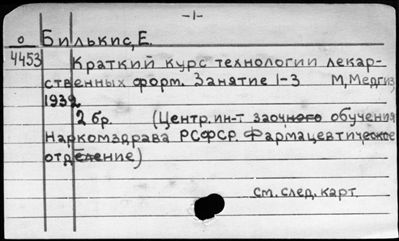 -1-
о Билькис, Е.
4453 Краткий курс технологии лекар-
ственных форм. Занятие 1-3 М, Медгиз
1939.
2 бр. (Центр. ин-т заочного обучения
Наркомздрава РСФСР. Фармацевтическое
отделение)
см. след. карт.